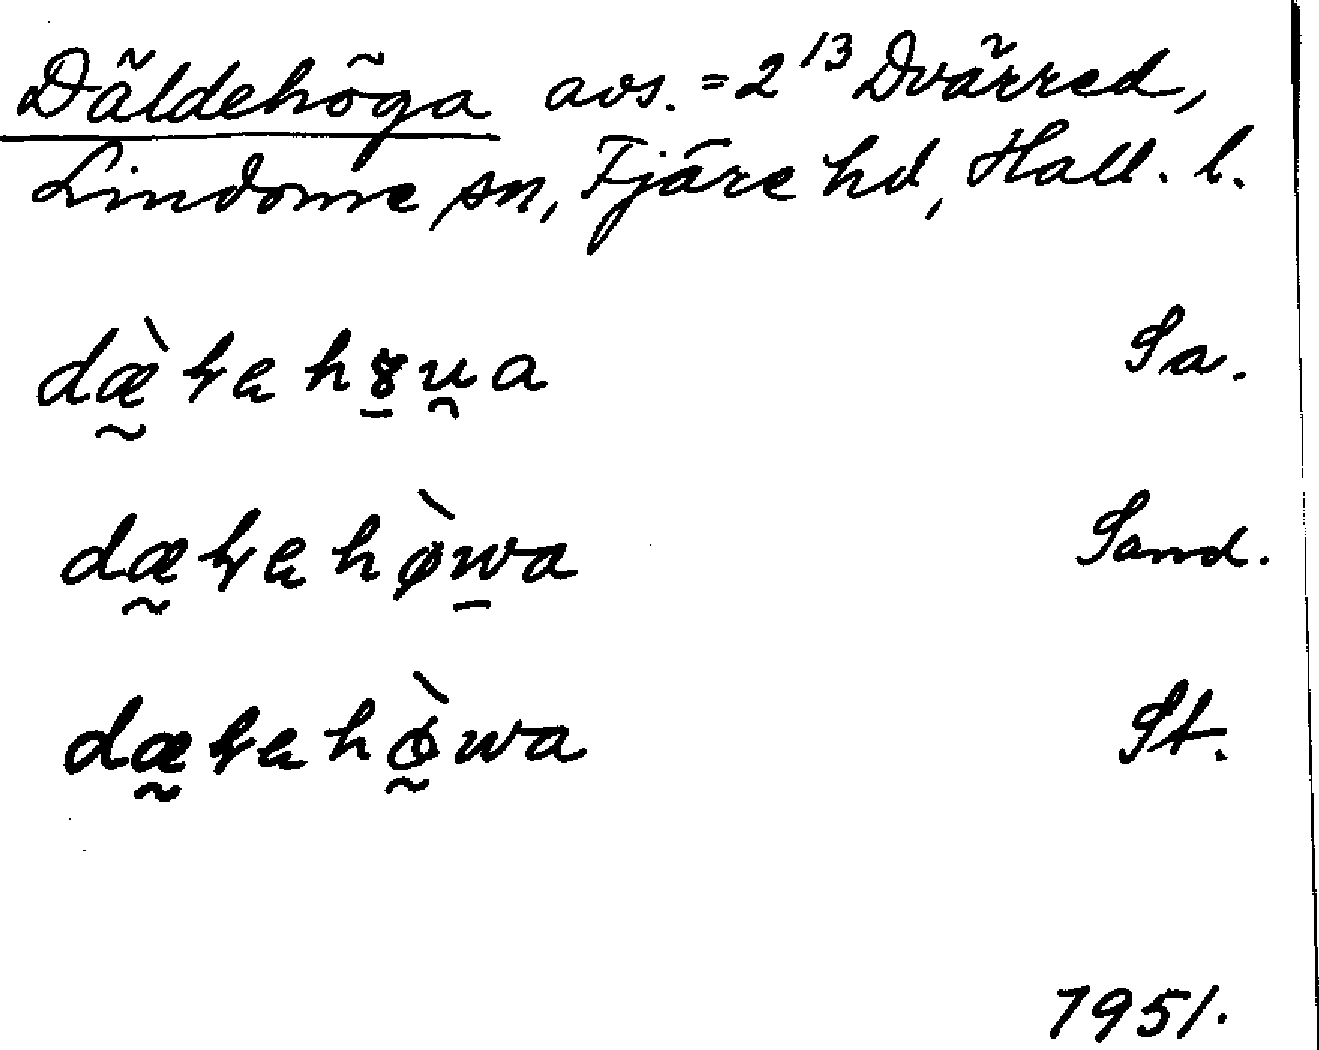 Däldehöga avs. = 2¹³ Dvärred,
Lindome sn, Fjäre hd, Hall. l.
dæ̰̀ɽɐhɤ̱u̯a Sa.
dæ̰ɽɐhø̀w̱a Sand.
dæ̰ɽɐhø̰̀wa St.
1951.